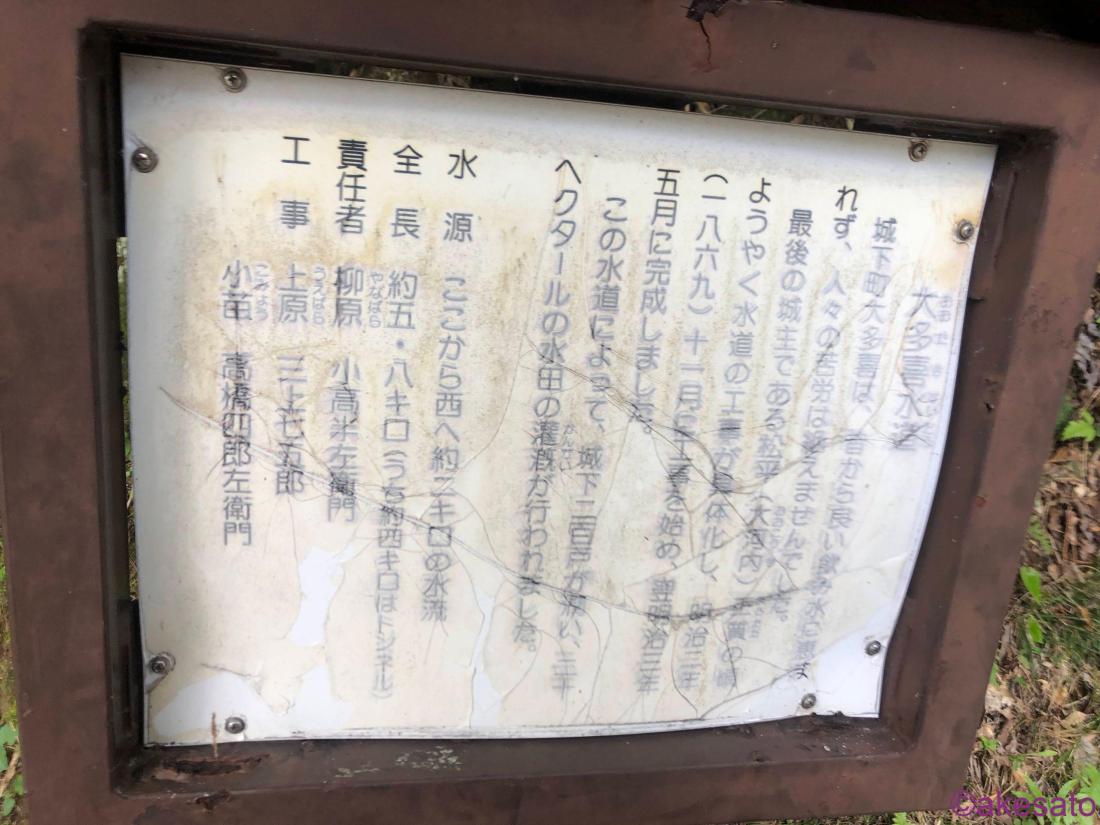 大多喜水道
城下町大多喜は、昔から良い飲み水に恵ま
れず、人々の苦労は絶えませんでした。
最後の城主である松平(大河内)正質の時
ようやく水道の工事が具体化し、明治二年
(一八六九)十一月に工事を始め、翌明治三年
五月に完成しました。
この水道によって、城下二百戸が潤い、三十
ヘクタールの水田の灌漑が行われました。
水源 ここから西へ約二キロの水流
全長 約五・八キロ(うち約四キロはトンネル)
責任者 柳原 小高半左衛門
工事 上原 三上七五郎
小苗 高橋四郎左衛門
©akesato